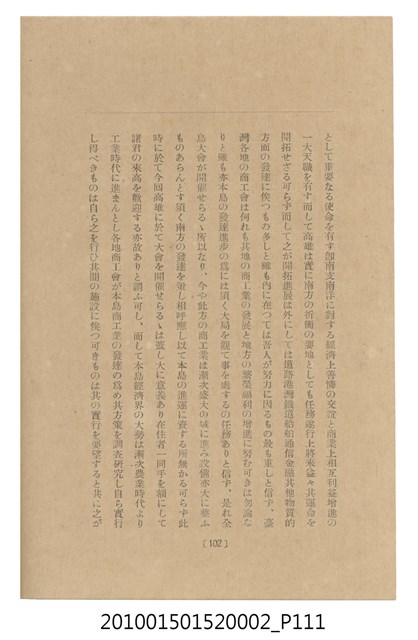 として重要なる使命を有す卽南支南洋に對する經濟上善隣の交誼と商業上相互利益增進の
一大天職を有す而して高雄は實に南方の折衝の要地としても任務遂行上將來益々其運命を
開拓せざる可らず而して之が開拓進展は外にしては道路港灣鐵道船舶通信金融其他物質的
方面の發達に俟つもの多しと雖も內に在つては吾人が努力に因るもの最も重しと信ず、臺
灣各地の商工會は何れも其地の商工業の發展と地方の繁榮福利の增進に努む可きは勿論な
りと雖も亦本島の發達進步の爲には須く大局を觀て事を處するの任務ありと信ず、是れ全
島大會が開催せらるゝ所以なり、今や此方の商工業は漸次盛大の域に進み設備亦大に整ふ
ものあらんとす須く南方の發達を策し相呼應し以て本島の進運に資する所無かる可らず此
時に於て今回高雄に於て大會を開催せらるゝは蓋し大に意義あり在住者一同手を額にして
諸君の來高を歡迎する亦故ありと謂ふ可し、而して本島經濟界の大勢は漸次農業時代より
工業時代に進まんとし各地商工會が本島商工業の發達の爲め其方策を調査硏究し自ら實行
し得べきものは自ら之を行ひ其間の施設に俟つ可きものは其の實行を要望すると共に之が
〔102〕
201001501520002_P111